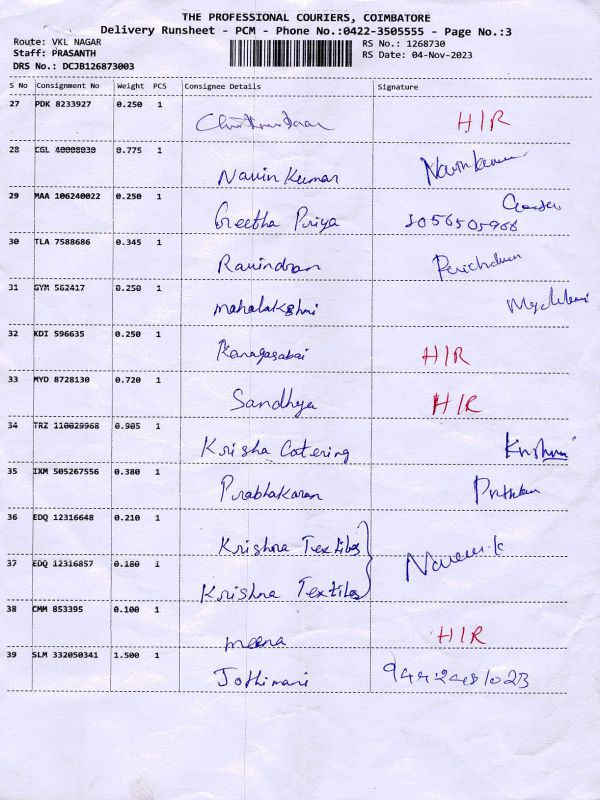 THE PROFESSIONAL COURIERS, COIMBATORE
Delivery Runsheet - PCM - Phone No.:0422-3505555 - Page No.:3
Route: VKL NAGAR RS No.: 1268730
Staff: PRASANTH RS Date: 04-Nov-2023
DRS No.: DCJB126873003
S No Consignment No Weight PCS Consignee Details Signature
27 PDK 8233927 0.250 1
H/R
28 CGL 40008030 0.775 1
Navin Kumar Navinkumar
29 MAA 106240022 0.250 1
Geetha Priya
30 TLA 7588686 0.345 1
Ravindran
31 GYM 562417 0.250 1
mahalakshmi
32 KDI 596635 0.250 1
Kanagasabai H/R
33 MYD 8728130 0.720 1
Sandhya H/R
34 TRZ 110029968 0.905 1
Krisha Catering
35 IXM 505267556 0.380 1
Prabhakaran
36 EDQ 12316648 0.210 1
Krishna Textiles
37 EDQ 12316857 0.180 1
Krishna Textiles
38 CMM 853395 0.100 1
meena H/R
39 SLM 332050341 1.500 1
Jothimani